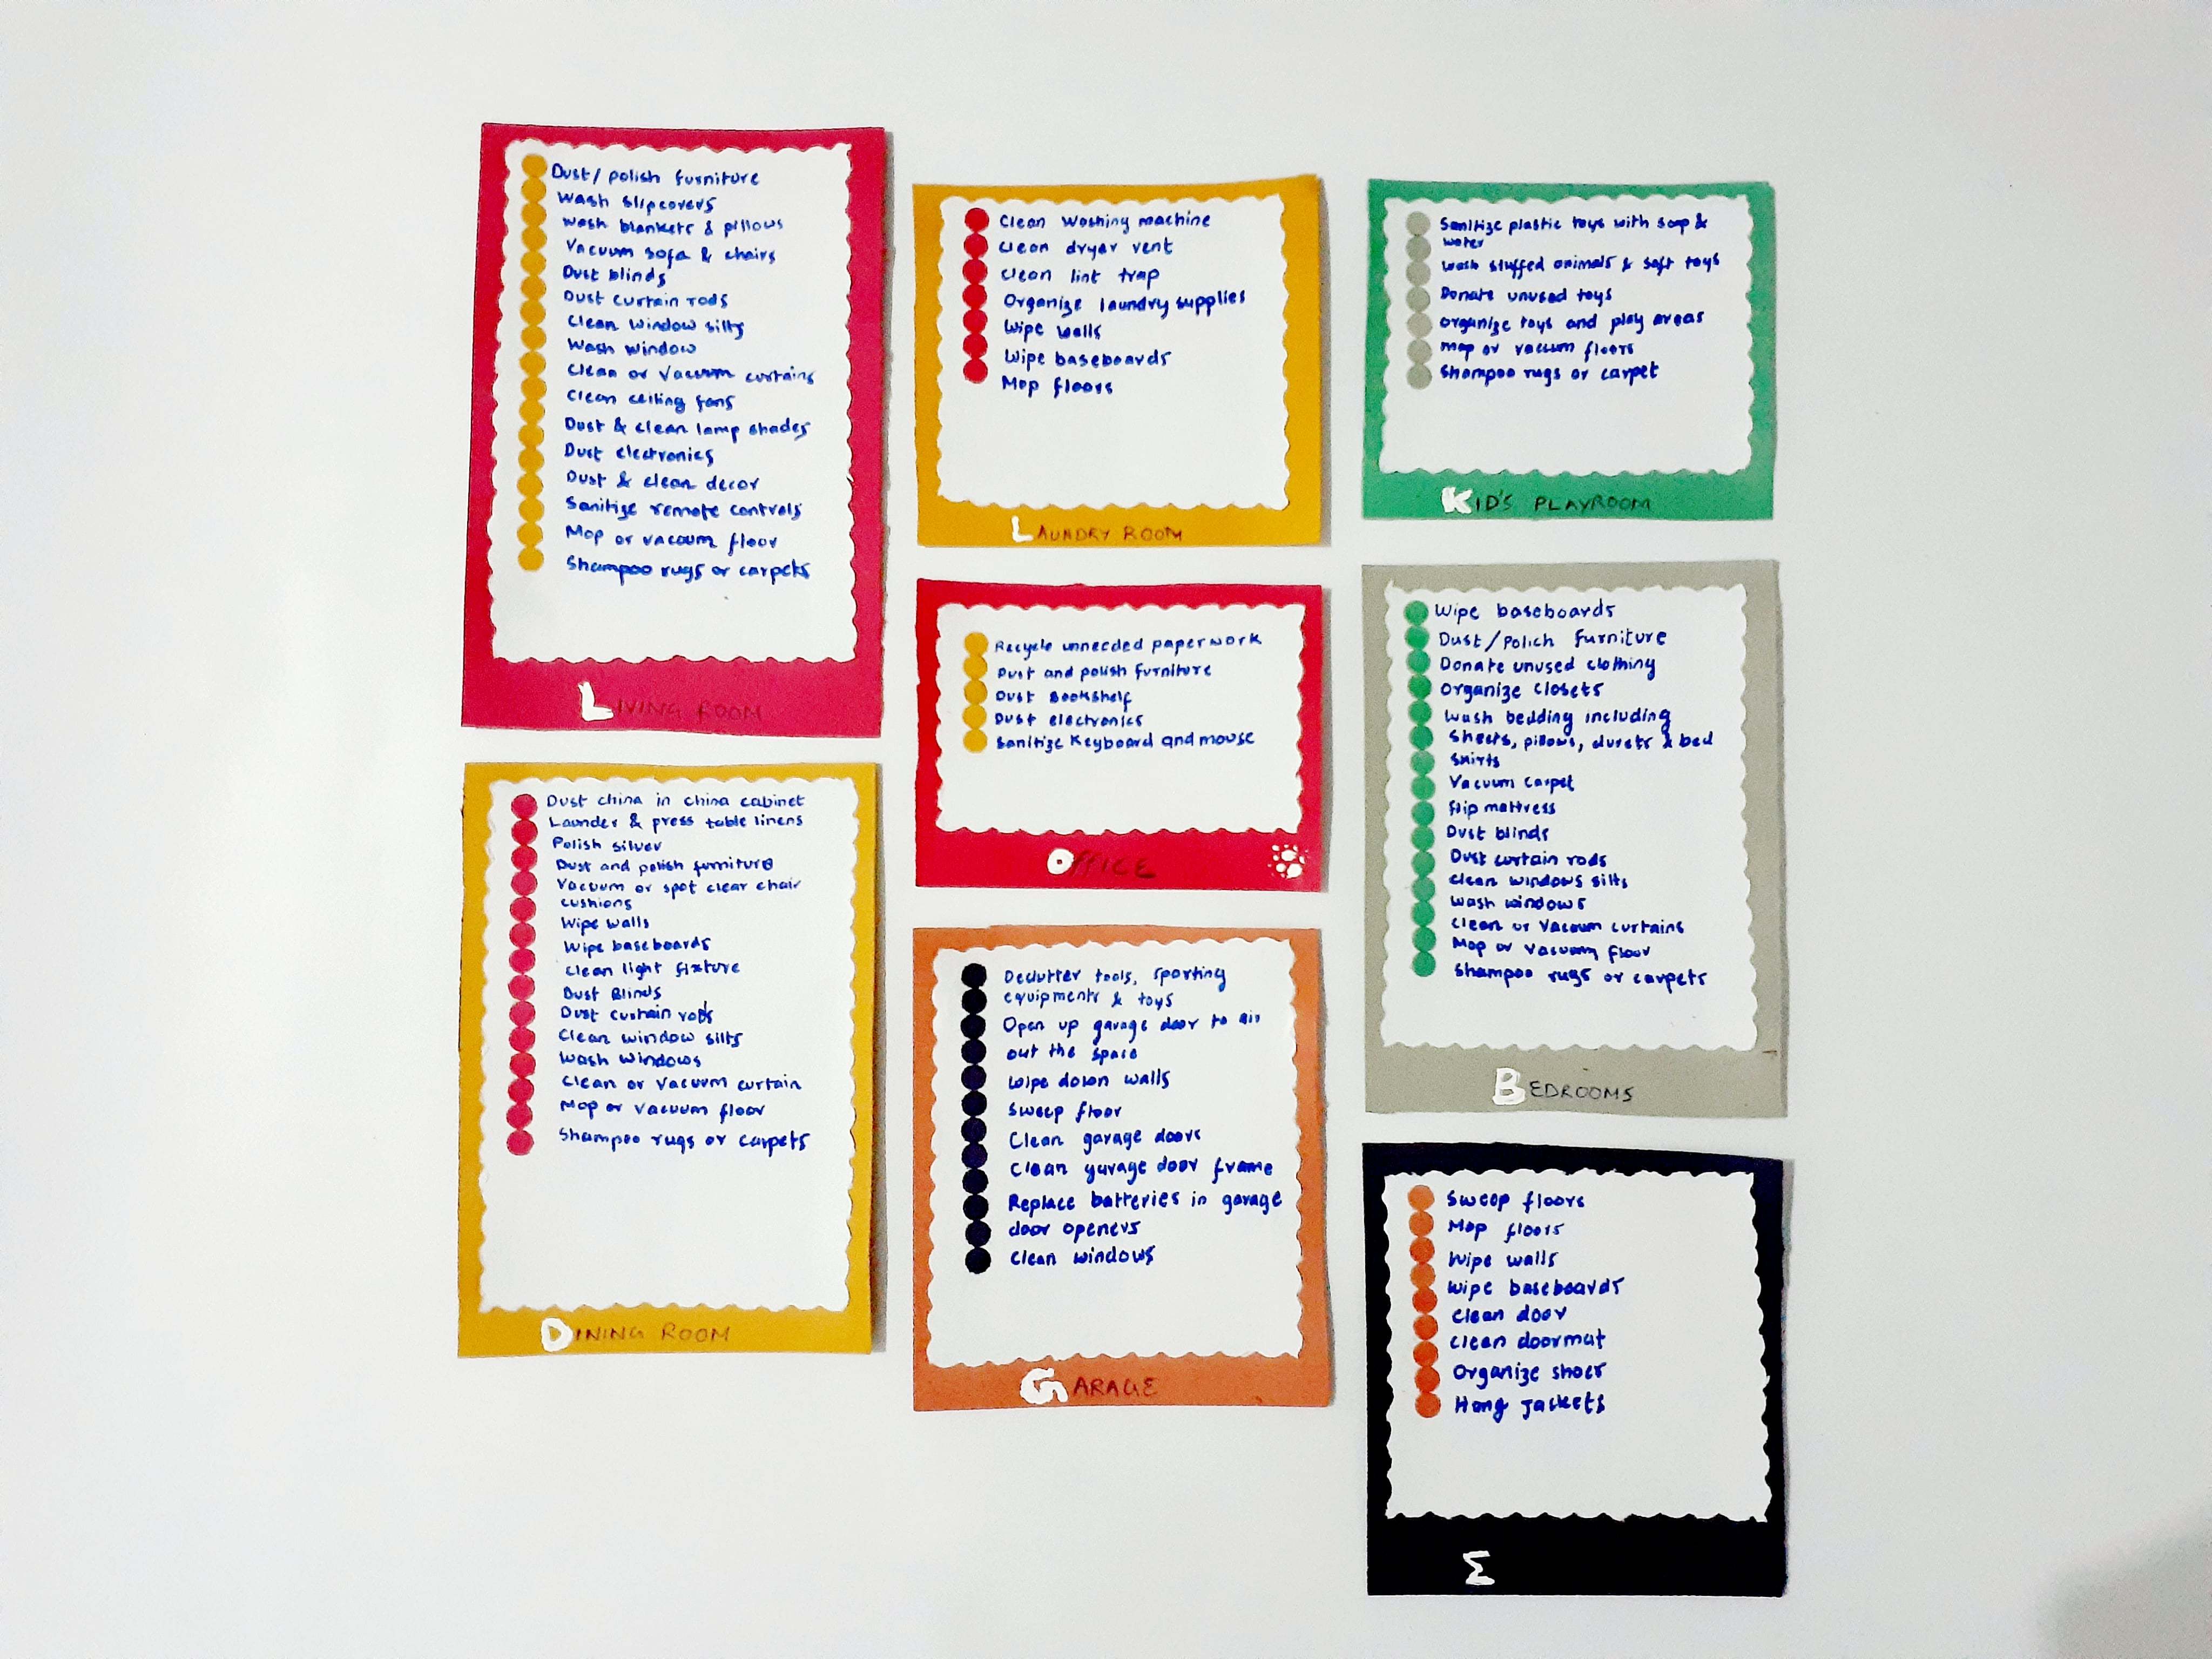 Dust/ polish furniture
Wash slipcovers
Wash blankets & pillows
Vacuum sofa & chairs
Dust blinds
Dust curtain rods
Clean window silts
Wash window
Clean or Vacuum curtains
Clean ceiling fans
Dust & clean lamp shades
Dust electronics
Dust & clean decor
Sanitize remote controls
Mop or vacuum floor
Shampoo rugs or carpets
LIVING ROOM
Dust china in china cabinet
Launder & press table linens
Polish silver
Dust and polish furniture
Vacuum or spot clear chair
cushions
Wipe walls
Wipe baseboards
Clean light fixture
Dust Blinds
Dust curtain rods
Clean window silts
Wash windows
Clean or Vacuum curtain
Mop or Vacuum floor
Shampoo rugs or carpets
DINING ROOM
Clean Washing machine
Clean dryer vent
Clean lint trap
Organize laundry supplies
Wipe walls
Wipe baseboards
Mop floors
LAUNDRY ROOM
Recycle unneeded paperwork
Dust and polish furniture
Dust Bookshelf
Dust electronics
Sanitize Keyboard and mouse
OFFICE
Declutter tools, sporting
equipments & toys
Open up garage door to air
out the space
Wipe down walls
Sweep floor
Clean garage doors
Clean garage door frame
Replace batteries in garage
door openers
Clean windows
GARAGE
Sanitize plastic toys with soap &
water
Wash stuffed animals & soft toys
Donate unused toys
organize toys and play areas
mop or vacuum floors
Shampoo rugs or carpet
KID'S PLAYROOM
Wipe baseboards
Dust/Polich furniture
Donate unused clothing
Organize closets
Wash bedding including
Sheets, pillows, duvets & bed
Skirts
Vacuum carpet
flip mattress
Dust blinds
Dust curtain rods
Clean windows silts
Wash windows
Clean or Vacuum curtains
Mop or Vacuum floor
Shampoo rugs or carpets
BEDROOMS
Sweep floors
Mop floors
Wipe walls
Wipe baseboards
Clean door
Clean doormat
Organize shoes
Hang Jackets
E